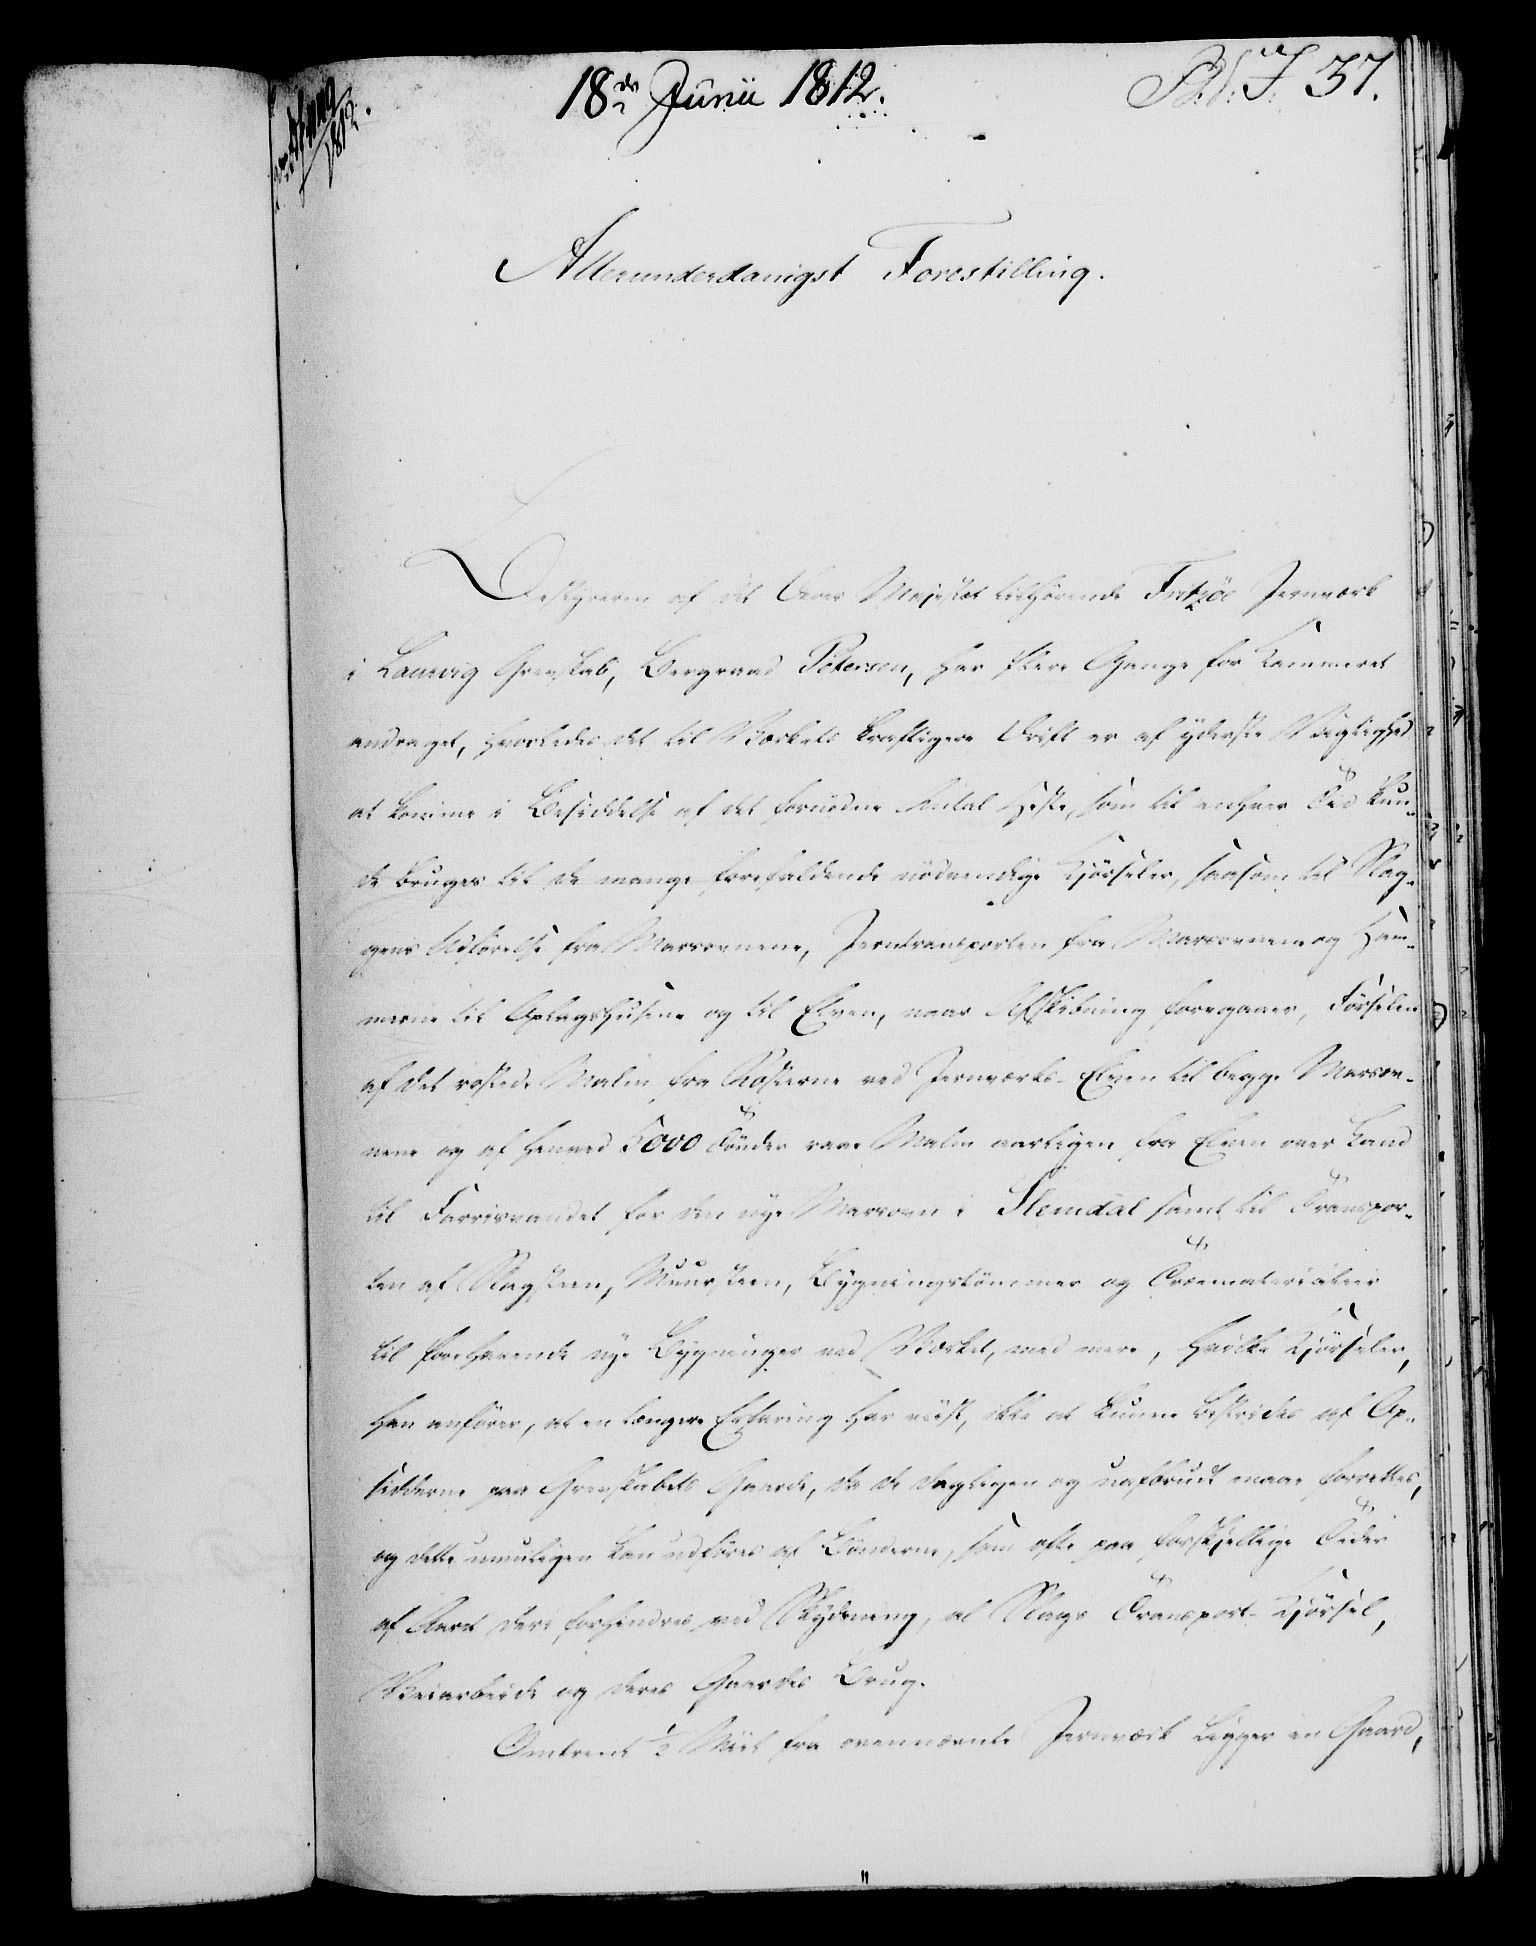 18de Junii 1812.
37.
1812.
Allerunderdanigst Forestilling.
Bestyreren af det Deres Majestæt tilhørende Fritzöe Jernværk
i Laurvig Grevskab, Bergraad Petersen, har flere Gange for Kammeret
andraget, hvorledes det til Værkets kraftigere Drift er af yderste Vigtighed
at komme i Besiddelse af det fornødne Antal Heste, som til enhver Tid kun-
de bruges til de mange forefaldende nødvendige Kjørseler, saasom til Slag-
gens Udførelse fra Masovnene, Jerntransporten fra Masovnene og Ham-
merne til Oplagshusene og til Elven, naar Afskibning foregaaer, Førselen
af det røstede Malm fra Røsterne ved Jernværks-Elven til begge Masov-
nene og af henved 5000 Tønder raae Malm aarligen fra Elven over Land
til Farrisvandet for den nye Masovn i Slemdal samt til Transpor-
ten af Slagsteen, Muursteen, Bygningstømmer og Træematerialier
til forehavende nye Bygninger ved Værket, med mere, hvilke Kjørseler,
han anfører, at en længere Erfaring har viist, ikke at kunne bestrides af Op-
sidderne paa Grevskabets Gaarde, da de dagligen og uafbrudt maae forrettes,
og dette umuligen kan udføres af Bønderne, som ofte paa forskjellige Tider
af Aaret deri forhindres ved Skydsning, al Slags Transport-Kjørsel,
Veiarbeide og deres Gaardes Brug.
Omtrent 1/2 Miil fra ovennævnte Jernværk ligger en Gaard,